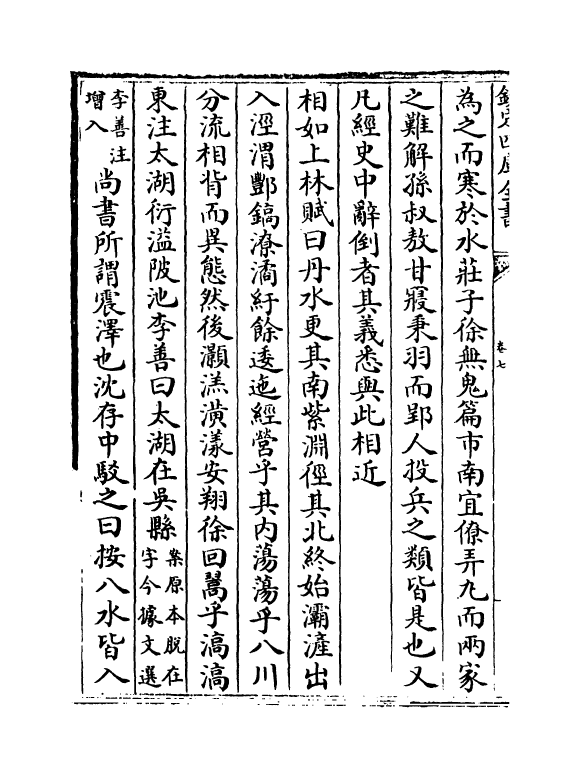 欽定四庫全書
卷七
為之而寒於水莊子徐無鬼篇市南宜僚弄九而兩家
之難解孫叔敖甘寢秉羽而郢人投兵之類皆是也又
凡經史中辭倒者其義悉與此相近
相如上林賦曰丹水更其南紫淵徑其北終始灞滻出
入涇渭酆鎬潦潏紆餘逶迤經營乎其内蕩蕩乎八川
分流相背而異態然後灝溔潢漾安翔徐回翯乎滈滈
東注太湖衍溢陂池李善曰太湖在吳縣案原本脱在
字今據文選
李善注
增入尚書所謂震澤也沈存中駁之曰按八水皆入